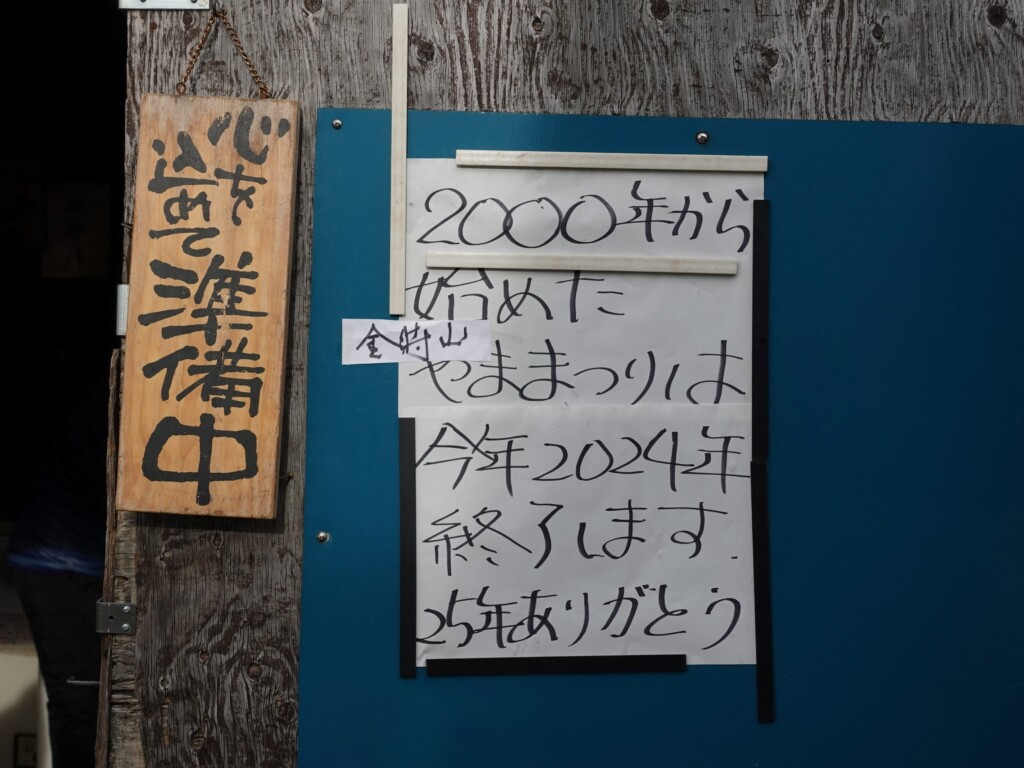 心を
込めて
準備
中
2000年から
始めた
金時山
やままつりは
今年2024年
終了します.
25年ありがとう